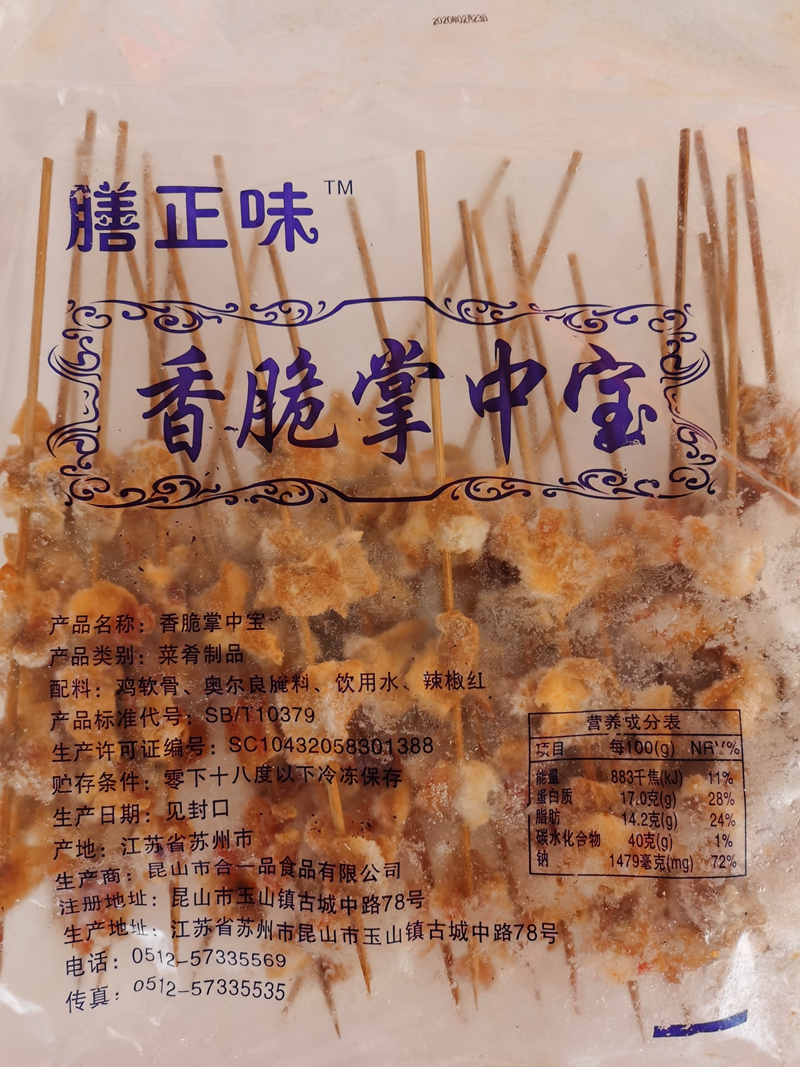 2020年02月23日
膳正味 TM
香脆掌中宝
产品名称：香脆掌中宝
产品类别：菜肴制品
配料：鸡软骨、奥尔良腌料、饮用水、辣椒红
产品标准代号：SB/T10379
生产许可证编号：SC10432058301388
贮存条件：零下十八度以下冷冻保存
生产日期：见封口
产地：江苏省苏州市
生产商：昆山市合一品食品有限公司
注册地址：昆山市玉山镇古城中路78号
生产地址：江苏省苏州市昆山市玉山镇古城中路78号
电话：0512-57335569
传真：0512-57335535
营养成分表
项目 每100(g) NRV%
能量 883千焦(kJ) 11%
蛋白质 17.0克(g) 28%
脂肪 14.2克(g) 24%
碳水化合物 40克(g) 1%
钠 1479毫克(mg) 72%